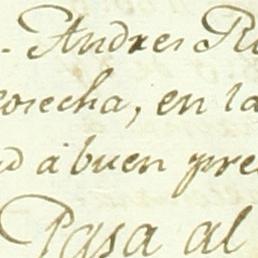 Andres R
cosecha, en la
d á buen pre
Pasa al